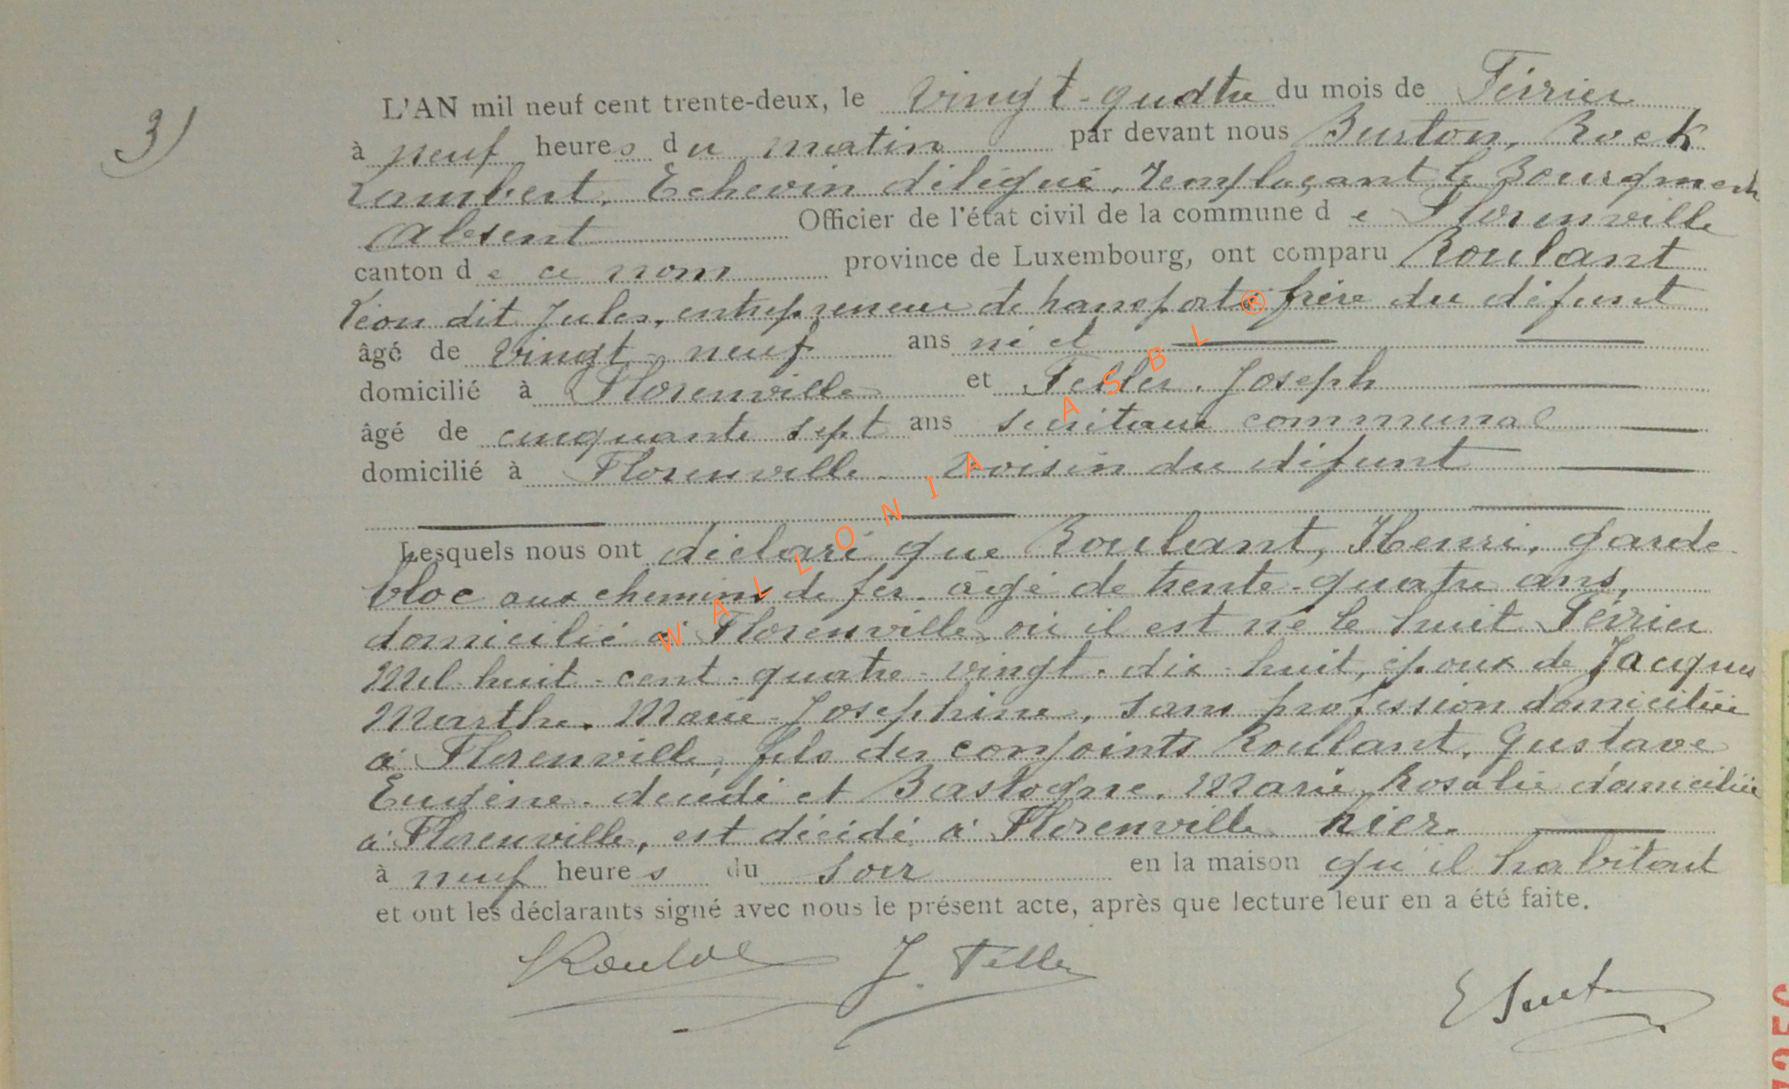 3)
L'AN mil neuf cent trente-deux, le vingt-quatre du mois de Février
à neuf heures du matin par devant nous Burton, Rock
Lambert, Echevin délégué, remplaçant le Bourgmestre
Absent Officier de l'état civil de la commune de Florenville
canton de ce nom province de Luxembourg, ont comparu Roulant
Léon dit Jules, entrepreneur de transports frère du défunt
âgé de vingt-neuf ans né et
domicilié à Florenville et Feller, Joseph
âgé de cinquante sept ans secrétaire communal
domicilié à Florenville. voisin du défunt
Lesquels nous ont déclaré que Roulant, Henri, garde-
bloc aux chemins de fer. âgé de trente-quatre ans,
domicilié à Florenville où il est né le huit Février
Mil-huit-cent-quatre-vingt-dix-huit, époux de Jacques
Marthe. Marie-Josephine, sans profession domiciliée
à Florenville, fils des conjoints Roulant, Gustave
Eugène. décédé et Bastogne, Marie Rosalie domiciliée
à Florenville, est décédé à Florenville hier.
à neuf heures du soir en la maison qu'il habitait
et ont les déclarants signé avec nous le présent acte, après que lecture leur en a été faite.
J. Feller
WALLONIA ASBL ®